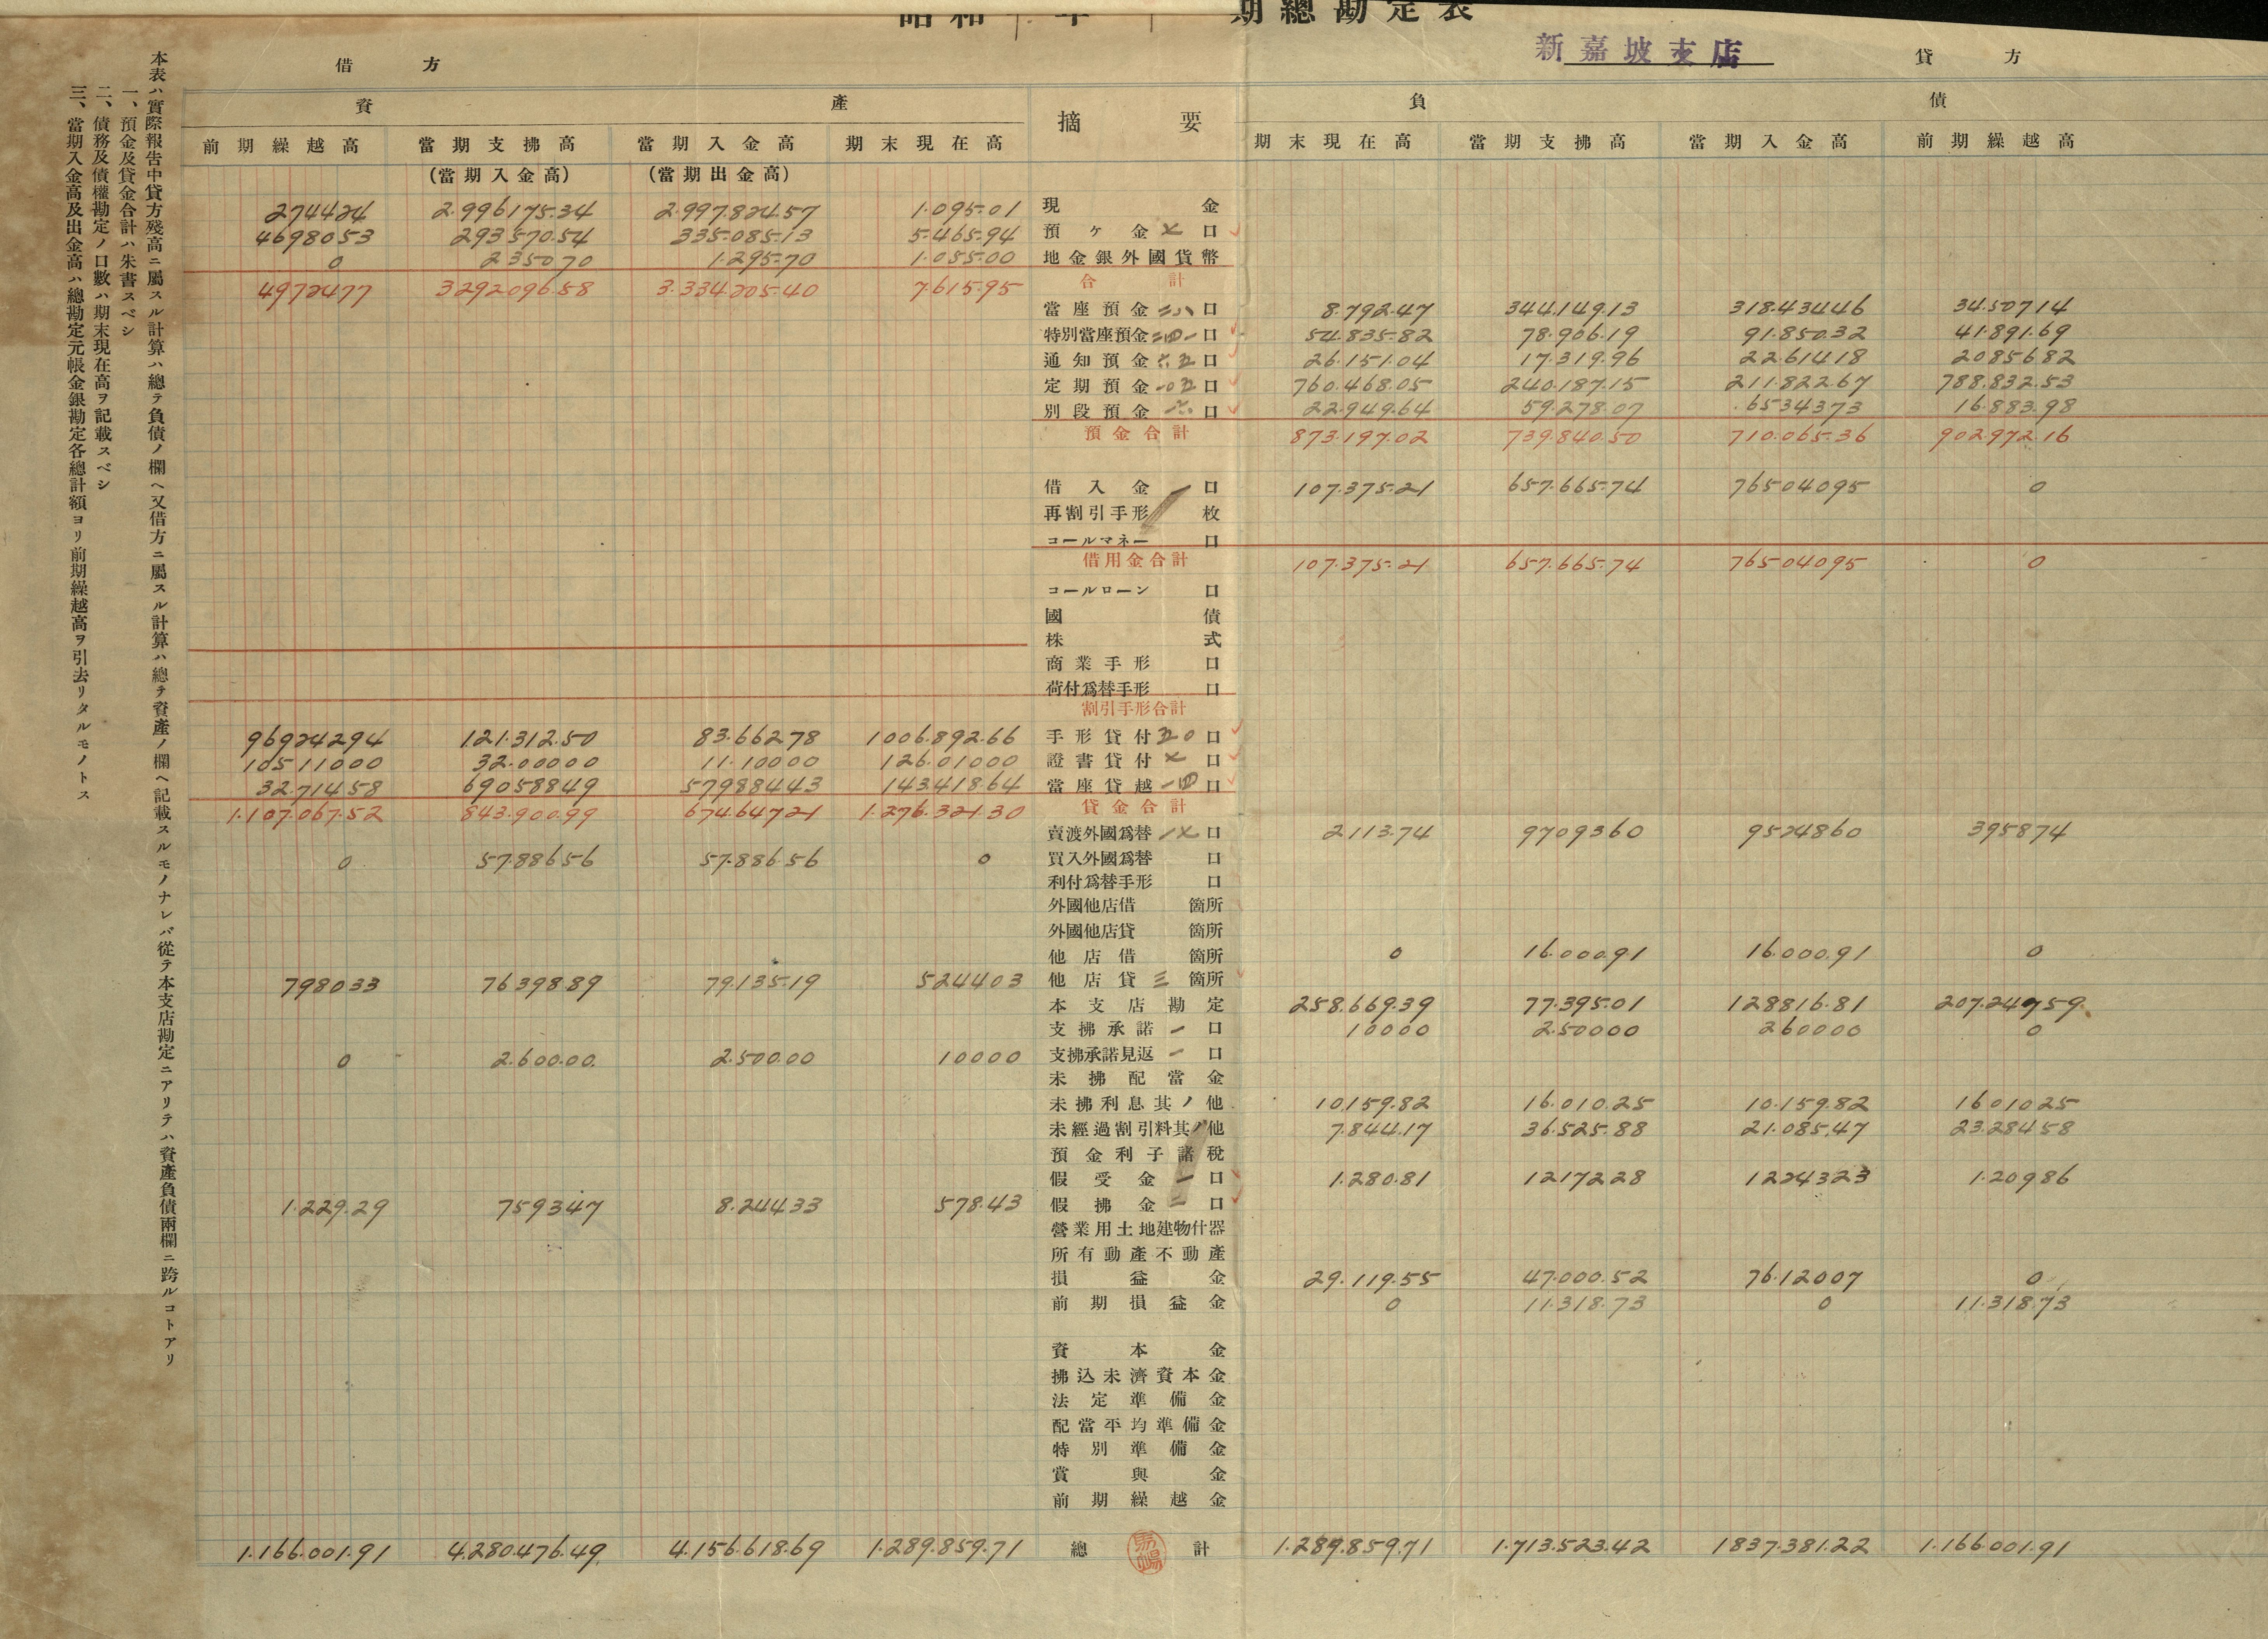 昭和 年 期總勘定表
新嘉坡支店
借方 貸方
資產 摘要 負債
前期繰越高 當期支拂高 當期入金高 期末現在高 期末現在高 當期支拂高 當期入金高 前期繰越高
(當期入金高) (當期出金高)
274424 2.996175.34 2.997.824.57 1.095.01 現金
4698053 293570.54 335.085.13 5.465.94 預ヶ金 七 口
0 235070 1.295.70 1.055.00 地金銀外國貨幣
4972477 329209658 3.334.205.40 7.615.95 合計
當座預金 二八 口 8.792.47 344.149.13 318.43446 34.50714
特別當座預金 二四一 口 54.835.82 78.906.19 91.850.32 41.891.69
通知預金 六五 口 26.151.04 17.319.96 2261418 2085682
定期預金 一〇五 口 760.468.05 240.187.15 211.822.67 788.832.53
別段預金 六 口 22.949.64 59.278.07 6534373 16.883.98
預金合計 873.197.02 739.840.50 710.065.36 902.972.16
借入金 一 口 107.375.21 657.665.74 76504095 0
再割引手形 枚
コールマネー 口
借用金合計 107.375.21 657.665.74 76504095 0
コールローン 口
國債
株式
商業手形 口
荷付爲替手形 口
割引手形合計
96924294 121.312.50 83.66278 1006.892.66 手形貸付 五〇 口
10511000 32.00000 11.10000 126.01000 證書貸付 七 口
32.71458 69058849 57988443 143.418.64 當座貸越 一四 口
1.107.067.52 843.900.99 67464721 1.276.321.30 貸金合計
賣渡外國爲替 一七 口 2113.74 9709360 9524860 395874
0 57.88656 57.886.56 0 買入外國爲替 口
利付爲替手形 口
外國他店借 箇所
外國他店貸 箇所
他店借 箇所 0 16.000.91 16.000.91 0
798033 7639889 79.135.19 524403 他店貸 三 箇所
本支店勘定 258.669.39 77.395.01 128816.81 207.24759
支拂承諾 一 口 10000 2.50000 260000 0
0 2.600.00. 2.500.00 10000 支拂承諾見返 一 口
未拂配當金
未拂利息其ノ他 10.159.82 16.010.25 10.159.82 1601025
未經過割引料其ノ他 7.844.17 36.525.88 21.085.47 23.28458
預金利子諸稅
假受金 一 口 1.280.81 1217228 1224323 1.20986
1.229.29 759347 8.24433 578.43 假拂金 二 口
營業用土地建物什器
所有動產不動產
損益金 29.119.55 47.000.52 76.12007 0
前期損益金 0 11.318.73 0 11.318.73
資本金
拂込未濟資本金
法定準備金
配當平均準備金
特別準備金
賞與金
前期繰越金
1.166.001.91 4.280.476.49. 4.156.618.69 1.289.859.71 總計 1.289.859.71 1.713.523.42 1837.381.22 1.166.001.91
本表ハ實際報吿中貸方殘高ニ屬スル計算ハ總テ負債ノ欄ヘ又借方ニ屬スル計算ハ總テ資產ノ欄ヘ記載スルモノナレバ從テ本支店勘定ニアリテハ資產負債兩欄ニ跨ルコトアリ
一、預金及貸金合計ハ朱書スベシ
二、債務及債權勘定ノ口數ハ期末現在高ヲ記載スベシ
三、當期入金高及出金高ハ總勘定元帳金銀勘定各總計額ヨリ前期繰越高ヲ引去リタルモノトス